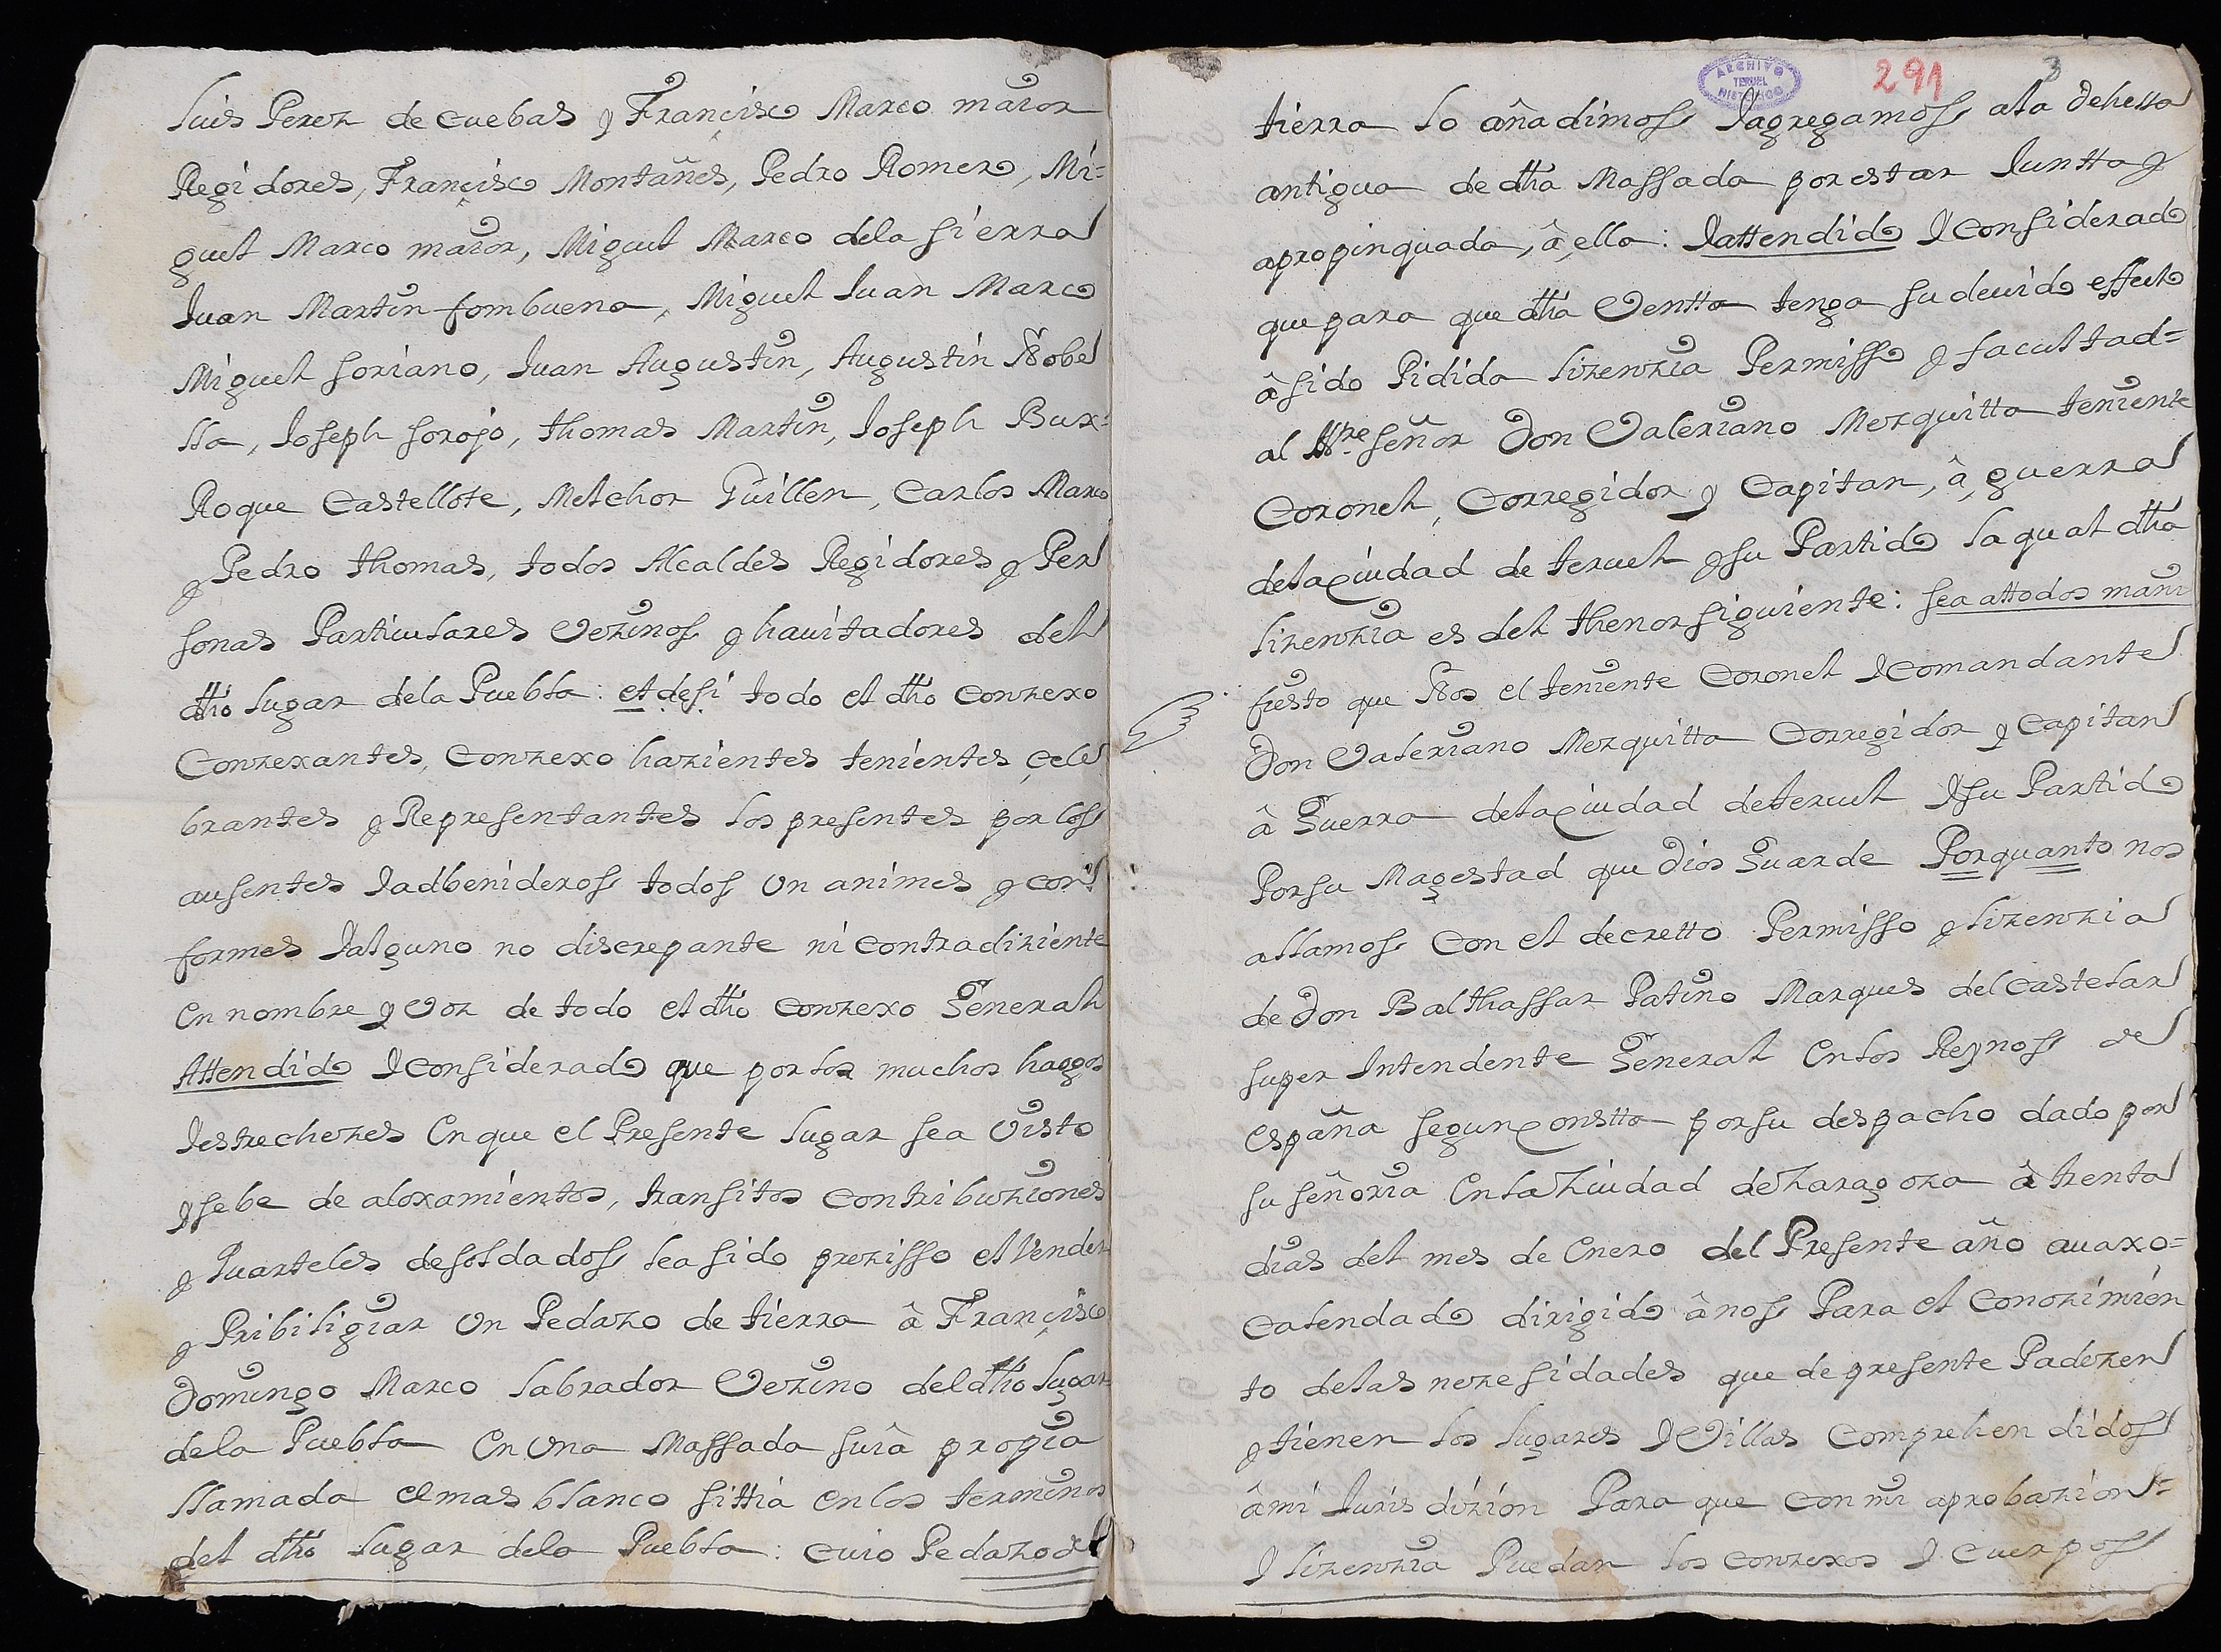 Luis Perez de Cuebas y Françisco Marco maior
Regidores, Françisco Montañes, Pedro Romero, Mi=
guel Marco maior, Miguel Marco dela sierra
Iuan Martin fombuena, Miguel Iuan Marco
Miguel soriano, Iuan Augustin, Augustin Nobe
lla, Ioseph sorojo, thomas Martin, Ioseph Bux=
Roque Castellote, Melchor Guillen, Carlos Marco
y Pedro thomas, todos Alcaldes Regidores y Per
sonas Particulares Vezinos y hauitadores del
dho lugar dela Puebla: et desi todo el dho Conzexo
Conzexantes, Conzexo hazientes tenientes, çele
brantes y Representantes los presentes por los
ausentes Iadbenideros todos Vn animes y con
formes Ialguno no discrepante ni Contradiziente
En nombre y Voz de todo el dho Conzexo General
Attendido Iconsiderado que por los muchos hagos
Iestrechezes En que el Presente lugar sea Visto
y sebe de aloxamientos, transitos Contribuziones
y Quarteles desoldados lea sido prezisso el Vender
y Pribiligiar Vn Pedazo de tierra â Françisco
Domingo Marco labrador Vezino del dho lugar
dela Puebla En Vna Massada suiâ propia
llamada el mas blanco sittia En los terminos
del dho lugar dela Puebla: Cuio Pedazo de
ARCHIVO
TERUEL
HISTORICO
291
3
tierra lo añadimos Iagregamos ala dehessa
antigua de dha Massada por estar Iuntta y
apropinquada, â ella: Iattendido Iconsiderado
que para que dha Ventta tenga su deuido effecto
â sido Pidida lizenzia Permisso y facultad=
al Illre señor Don Valeriano Mezquitta teniente
Coronel, Corregidor y Capitan, â guerra
dela Ciudad de teruel y su Partido la qual dha
lizenzia es del thenor siguiente: sea attodos mani
fiesto que Nos el teniente Coronel Icomandante
Don Valeriano Mezquitta Corregidor y Capitan
â Guerra dela Ciudad de teruel Isu Partido
Por su Magestad que Dios Guarde Porquanto nos
allamos Con el decretto Permisso y lizenzia
de Don Balthassar Patiño Marques del Castelar
super Intendente General En los Reynos de
España segun Constta por su despacho dado por
su señoria En la Ziudad de Zaragoza â trenta
dias del mes de Enero del Presente año auaxo=
Calendado dirigido â nos Para el Conozimien
to delas nezesidades que de presente Padezen
y tienen los lugares IVillas Comprehendidos
â mi Iurisdizion Para que Con mi aprobazion=
I lizenzia Puedan los Conzexos I Cuerpos